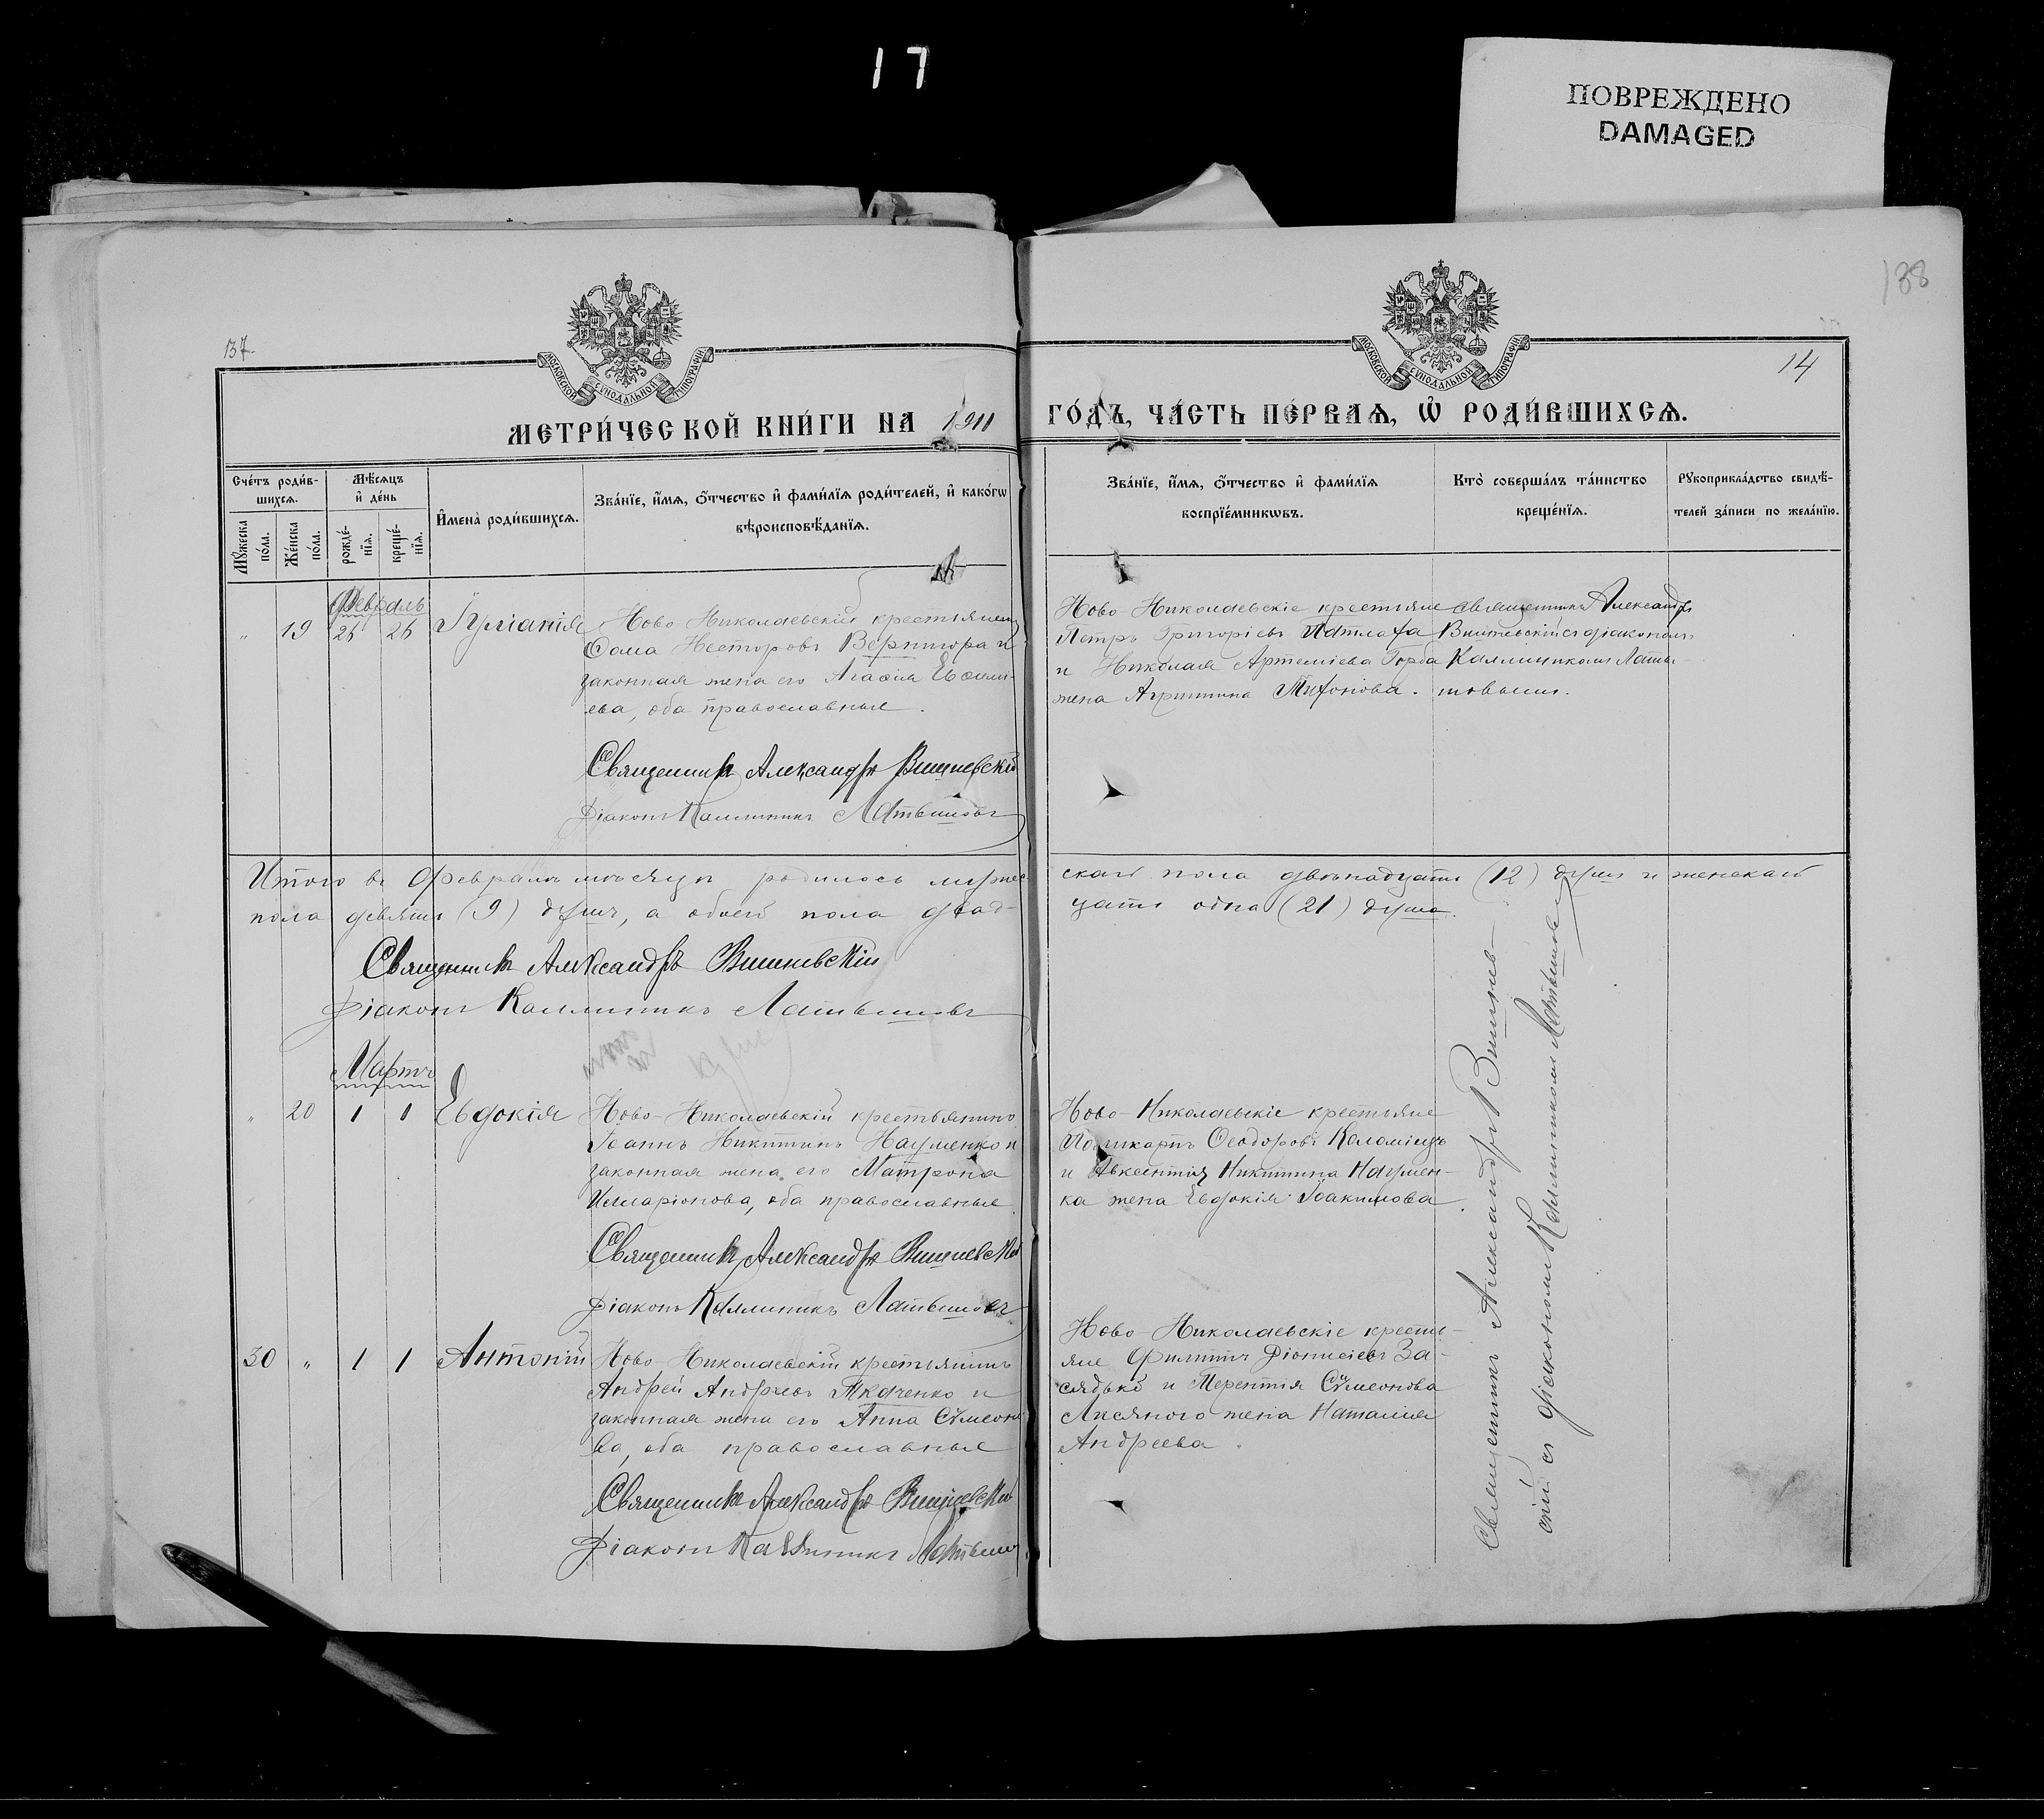 17
ПОВРЕЖДЕНО
DAMAGED
137.
138
14
МОСКОВСКОЙ СУНОДАЛЬНОЙ ТИПОГРАФІИ
МОСКОВСКОЙ СУНОДАЛЬНОЙ ТИПОГРАФІИ
МЕТРИ́ЧЕСКОЙ КНИ́ГИ НА 1911 ГО́ДЪ, ЧА́СТЬ ПЕ́РВАѦ, Ѡ҆ РОДИ́ВШИХСѦ.
Сче́тъ роди́в-
шихсѧ.
Мꙋ́жеска
по́ла.
Же́нска
по́ла.
Мѣ́сѧцъ
и҆ де́нь
рожде́-
нїѧ.
креще́-
нїѧ.
И҆мена̀ роди́вшихсѧ.
Зва́нїе, и҆́мѧ, ѻ҆́тчество и҆ фами́лїѧ роди́телей, и҆ како́гѡ
вѣроисповѣ́данїѧ.
Зва́нїе, и҆́мѧ, ѻ҆́тчество и҆ фами́лїѧ
воспрїе́мникѡвъ.
Кто̀ соверша́лъ та́инство
креще́нїѧ.
Рꙋкоприкла́дство свидѣ́-
телей за́писи по жела́нїю.
Февраль
" 19 26 26 Іуліанія
Ново-Николаевскій крестьянинъ
Ѳома Несторовъ Вернигора и
законная жена его Агаѳія Евѳимі-
ева, оба православные.
Священникъ Александръ Вишневскій
Діаконъ Каллиникъ Латышовъ
Ново-Николаевскіе крестьяне
Петръ Григоріевъ Патлаха
и Николая Артеміева Горба
жена Агриппина Тихонова.
Священникъ Александръ
Вишневскій съ діакономъ
Каллиникомъ Латы-
шовымъ.
Итого въ Февралѣ мѣсяцѣ родилось мужес
скаго пола двѣнадцать (12) душъ и женскаго
пола девять (9) душъ, а обоего пола двад-
цать одна (21) душа.
Священникъ Александръ Вишневскій
Діаконъ Каллиникъ Латышовъ
Мартъ
" 20 1 1 Евдокія
Ново-Николаевскій крестьянинъ
Іоаннъ Никитинъ Науменко и
законная жена его Матрона
Илларіонова, оба православные.
Священникъ Александръ Вишневскій
Діаконъ Каллиникъ Латышовъ
Ново-Николаевскіе крестьяне
Поликарпъ Ѳеодоровъ Коломіецъ
и Авксентія Никитина Наумен-
ка жена Евдокія Іоакимова.
30 " 1 1 Антоній
Ново-Николаевскій крестьянинъ
Андрей Андреевъ Ткаченко и
законная жена его Анна Сѵмеоно
ва, оба православные
Священникъ Александръ Вишневскій
Діаконъ Каллиникъ Латышов
Ново-Николаевскіе кресть-
яне Филиппъ Діонисіевъ За-
сядько и Терентія Сѵмеонова
Лисяного жена Наталія
Андреева.
Священникъ Александръ Вишнев-
скій съ діакономъ Каллиникомъ Латышовымъ